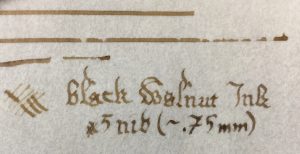 black walnut Ink
#5 nib (~.75mm)